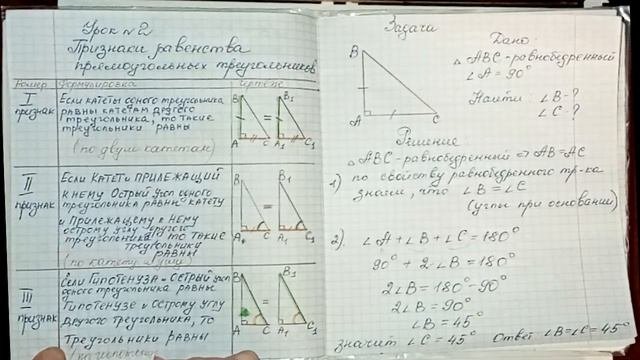 Урок №2
Признаки равенства
прямоугольных треугольников
Номер Формулировка Чертеж
I
признак
Если катеты одного треугольника
равны катетам другого
треугольника, то такие
треугольники равны
(по двум катетам)
B B1
=
A C A1 C1
II
признак
Если КАТЕТ И ПРИЛЕЖАЩИЙ
к нему Острый угол одного
треугольника равны катету
и Прилежащему к нему
острому углу другого
треугольника, то такие
треугольники
равны
(по катету и углу)
B B1
=
A C A1 C1
III
признак
Если Гипотенуза и Острый угол
одного треугольника равны
Гипотенузе и Острому углу
другого треугольника, то
Треугольники равны
B B1
=
A C A1 C1
Задачи
B
A C
Дано:
△ ABC - равнобедренный
∠A = 90°
Найти: ∠B - ?
∠C - ?
Решение
△ ABC - равнобедренный ⇒ AB = AC
1) по свойству равнобедренного тр-ка
значит, что ∠B = ∠C
(углы при основании)
2). ∠A + ∠B + ∠C = 180°
90° + 2·∠B = 180°
2∠B = 180° - 90°
2∠B = 90°
∠B = 45°
значит ∠C = 45° Ответ ∠B = ∠C = 45°